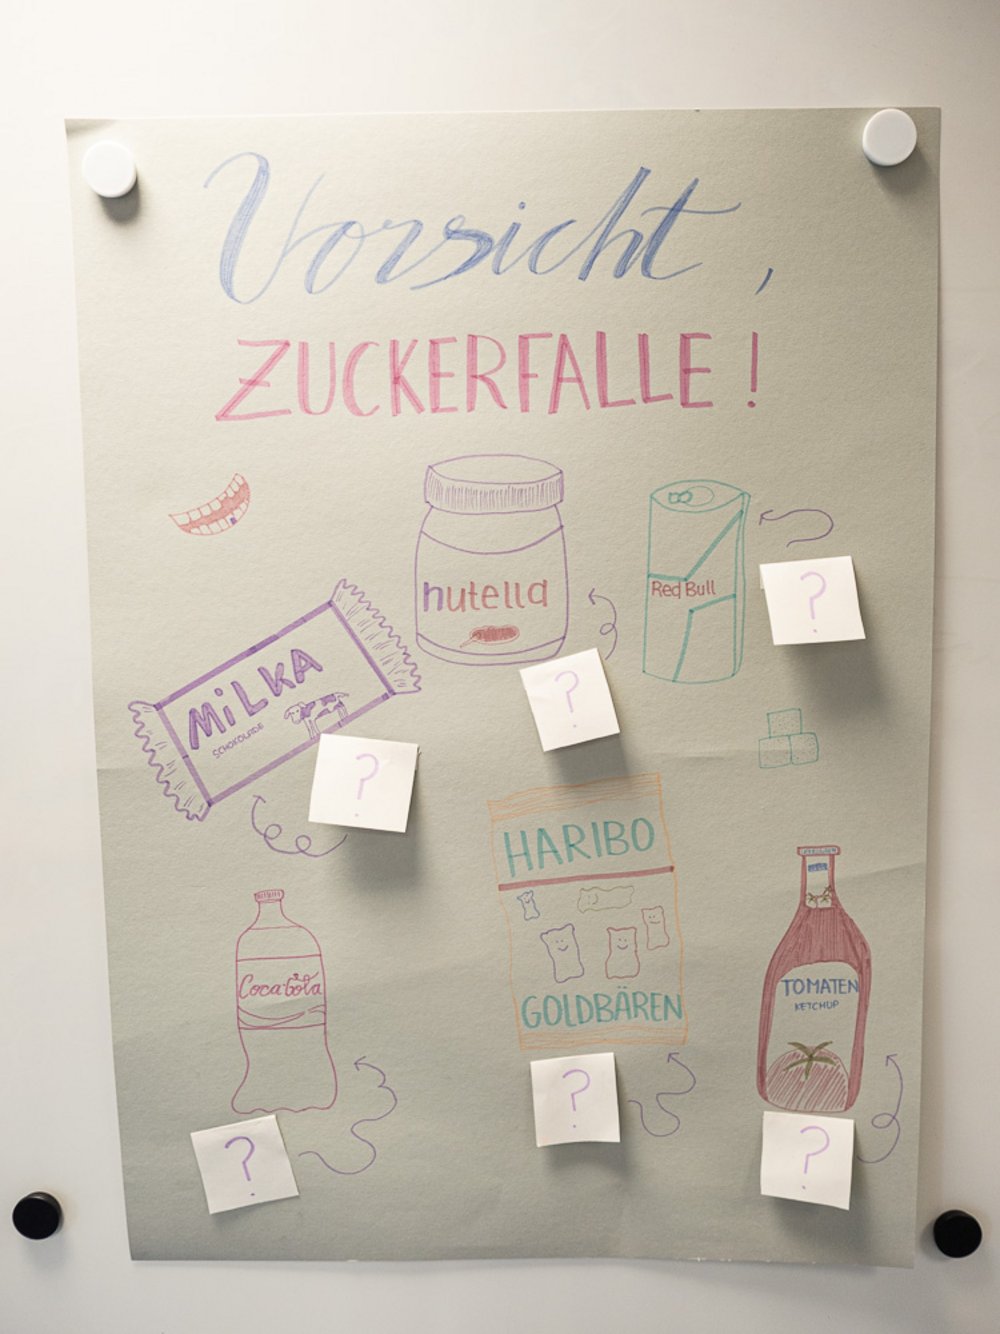 Vorsicht,
ZUCKERFALLE!
nutella
Red Bull
MiLKA
SCHOKOLADE
?
?
?
HARIBO
GOLDBÄREN
Coca-Cola
TOMATEN
KETCHUP
?
?
?